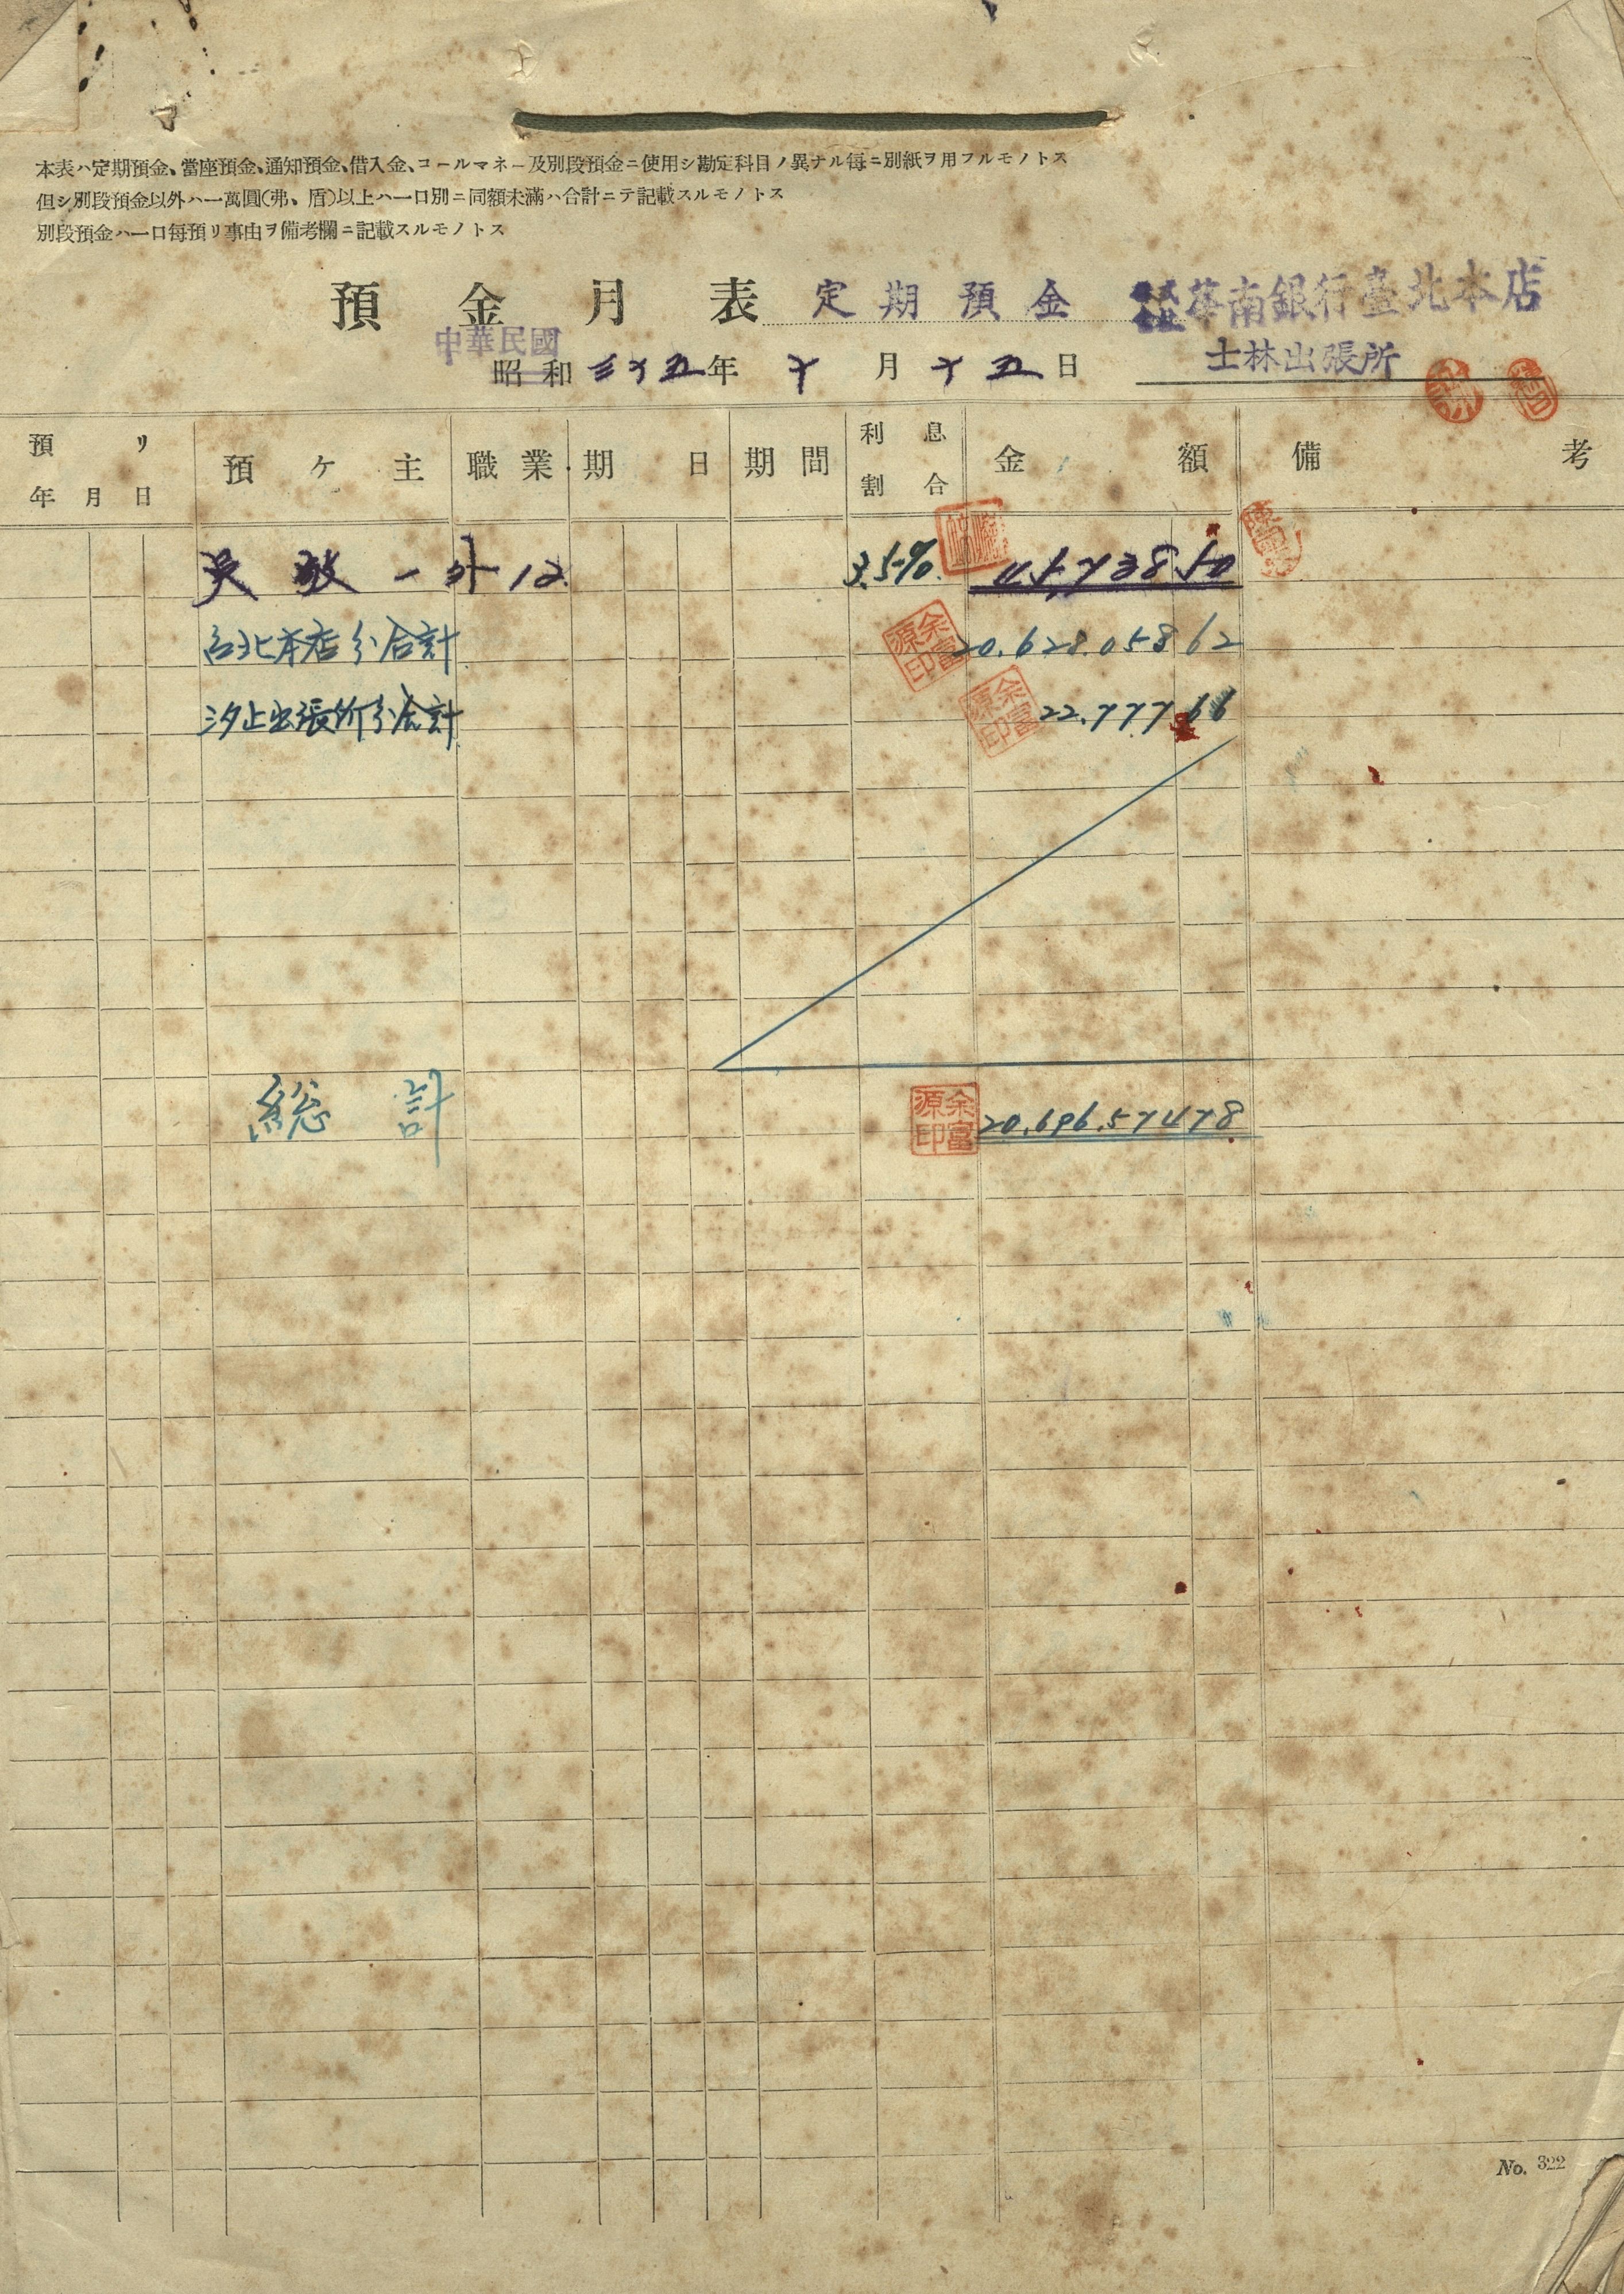 本表ハ定期預金、當座預金、通知預金、借入金、コールマネー及別段預金ニ使用シ勘定科目ノ異ナル毎ニ別紙ヲ用フルモノトス
但シ別段預金以外ハ一萬圓(弗、盾)以上ハ一口別ニ同額未滿ハ合計ニテ記載スルモノトス
別段預金ハ一口毎預リ事由ヲ備考欄ニ記載スルモノトス
預金月表 定期預金 華南銀行臺北本店
中華民國
昭和 三十五年 十月 十五日 士林出張所
預リ年月日 預ケ主 職業 期日 期間 利息割合 金額 備考
吳 敦 一 外 12 3.5% 45,738 50
台北本店分合計 余富源印 20.628.058 62
汐止出張所分合計 余富源印 22.777 66
総計 余富源印 20.696.574 78
No. 322